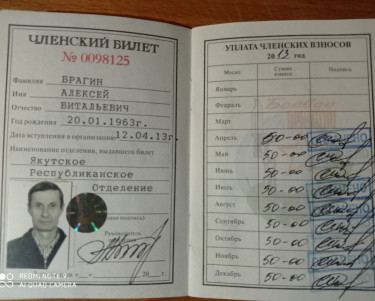 ЧЛЕНСКИЙ БИЛЕТ
№ 0098125
Фамилия БРАГИН
Имя АЛЕКСЕЙ
Отчество ВИТАЛЬЕВИЧ
Год рождения 20.01.1963г.
Дата вступления в организацию 12.04.13г.
Наименование отделения, выдавшего билет
Якутское
Республиканское
Отделение
(личная подпись)
Руководитель
20 г.
REDMI NOTE 9
AI QUAD CAMERA
УПЛАТА ЧЛЕНСКИХ ВЗНОСОВ
2013 год
Месяц Сумма взноса Подпись
Январь
Февраль
Март
Апрель 50-00
Май 50-00
Июнь 50-00
Июль 50-00
Август 50-00
Сентябрь 50-00
Октябрь 50-00
Ноябрь 50-00
Декабрь 50-00